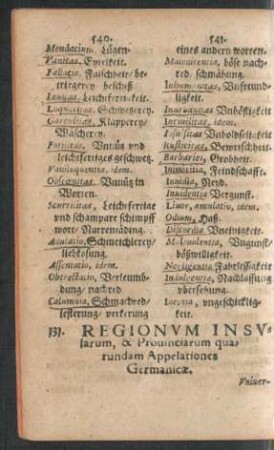 540.
Mendacium. Lügen.
Vanitas. Eytelkeit.
Fallacia. Falschheit/ be-
triegerey/ bescheß
Leuitas. Leichtfertigkeit.
Loquacitas. Schwetzerey.
Garrulitas. Klapperey/
Wäscherey.
Futilitas. Vnnütz vnd
leichtfertiges geschwetz.
Vaniloquentia, idem.
Obscœnitas. Vnnütz in
Worten.
Scurrilitas, Leichtfertige
vnd schampare schimpff
wort/ Narrenthäding.
Adulatio, Schmeichlerey/
liebkosung.
Assentatio, idem.
Obtrectatio, Verleumb-
dung/ nachred
Calumnia, Schmachred/
lesterung/ verkerung
541.
eines andern worten.
Maledicentia, böse nach-
red. schmähung.
Inhumanitas, Vnfreund-
ligkeit.
Inurbanitas Vnhöfligkeit
Inciuilitas, idem.
Rusticitas, Bewrischheit.
Barbaries, Grobheit.
Inimicitia, Feindschafft.
Inuidia, Neyd.
Inuidentia Vergunst.
Liuor, æmulatio, idem.
Odium, Haß.
Discordia Vneinigkeit.
Maleuolentia, Vngunst/
bößwilligkeit.
Negligentia Fahrlessigkeit
Indulgentia, Nachlassung
vbersehung.
Inertia, vngeschicklig-
keit.
131. REGIONVM INSV
larum, & Prouinciarum qua-
rundam Appelationes
Germanicæ.
Vniuer-